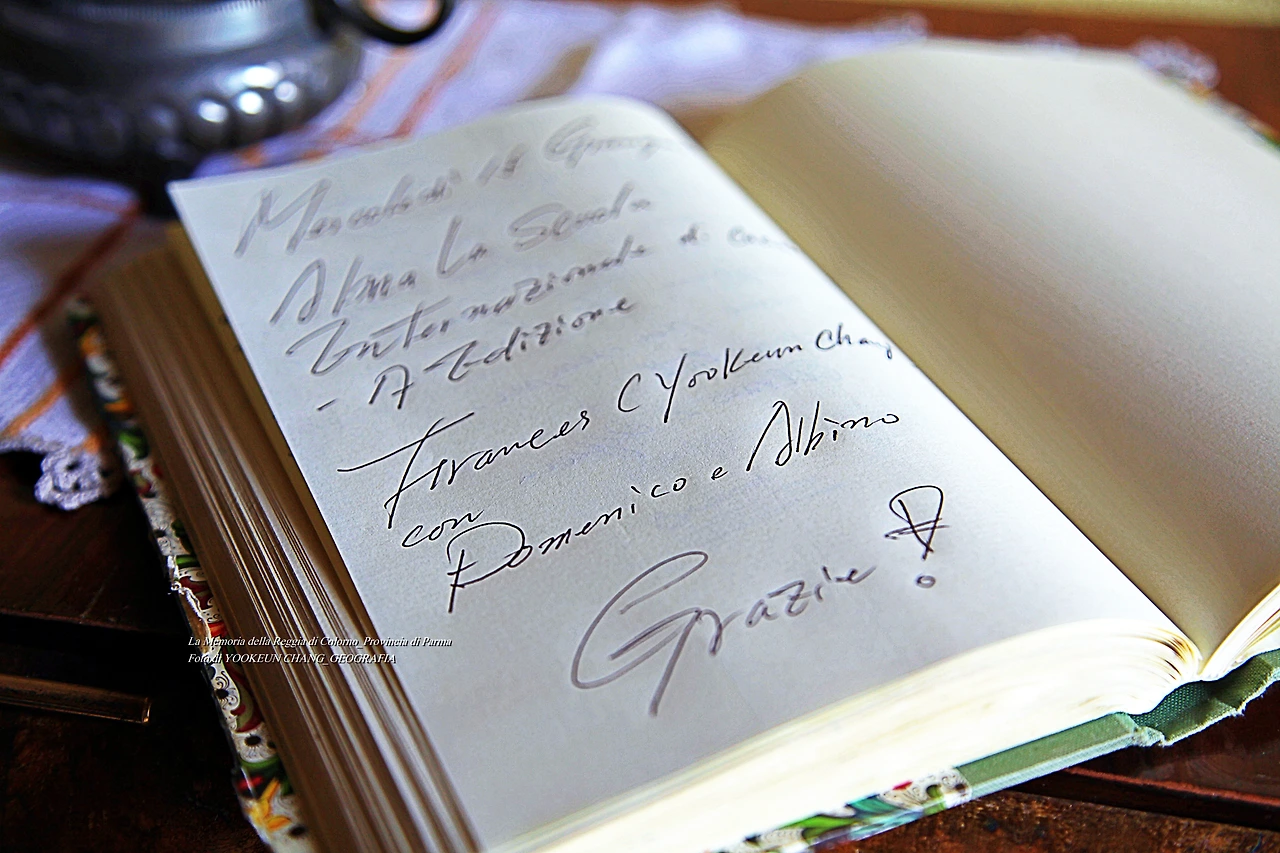 Mercoledì 18
Alma La Scuola
Internazionale di
- 17 Edizione
Frances (Yookeun Chang
con
Domenico e Albino
Grazie !
La Memoria della Reggia di Colorno_Provincia di Parma
Foto di YOOKEUN CHANG_GEOGRAFIA